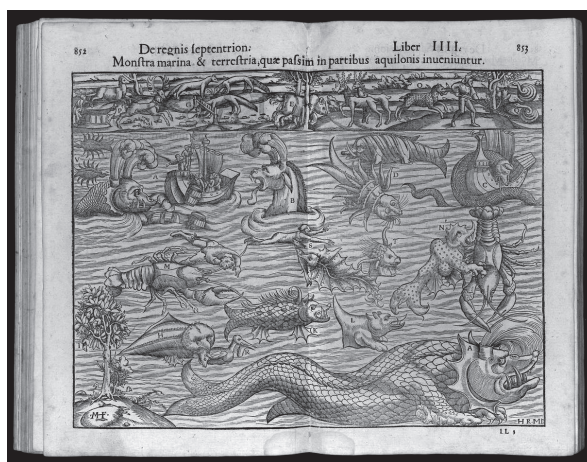 852 De regnis ſeptentrion. Liber IIII. 853
Monſtra marina & terreſtria, quæ paſsim in partibus aquilonis inueniuntur.
A
B
D
C
M
T
N
K
H
L
A
M·F·
H·R·M·D
LL 2